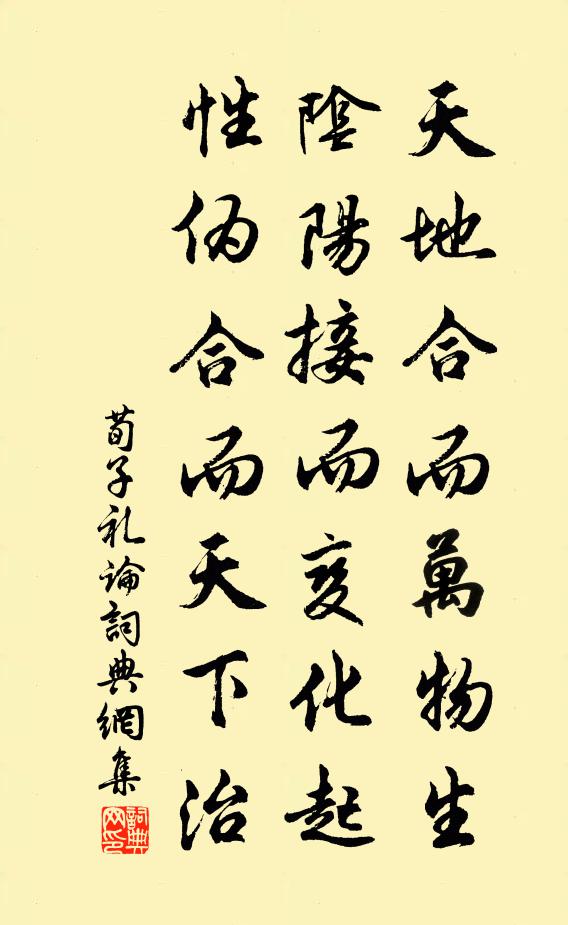 天地合而萬物生
陰陽接而变化起
性伪合而天下治
荀子礼論詞典網集
詞典網印